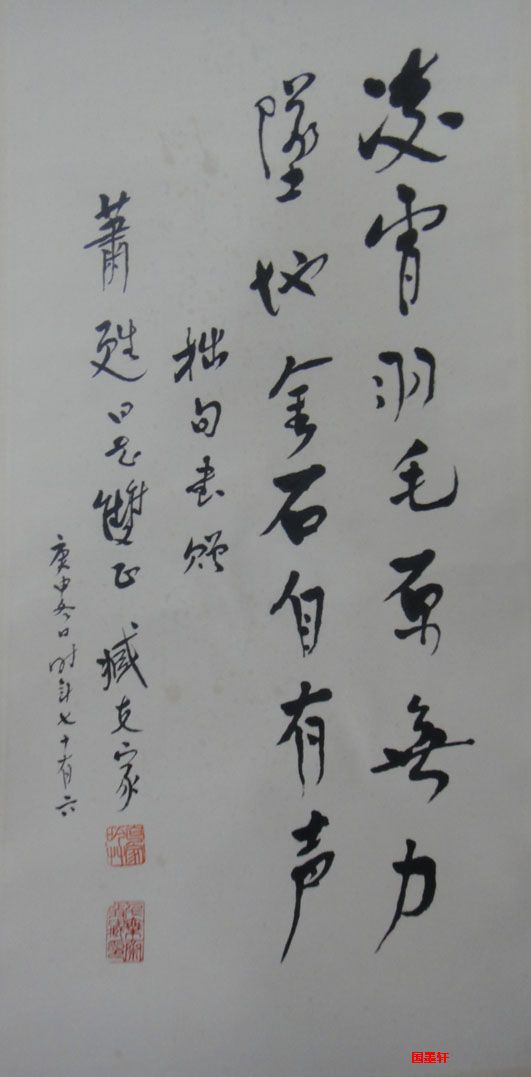 凌霄羽毛原無力
墜地金石自有声
拙句書贈
蕭甦同志雙正 臧克家
庚申冬日时年七十有六
国墨轩